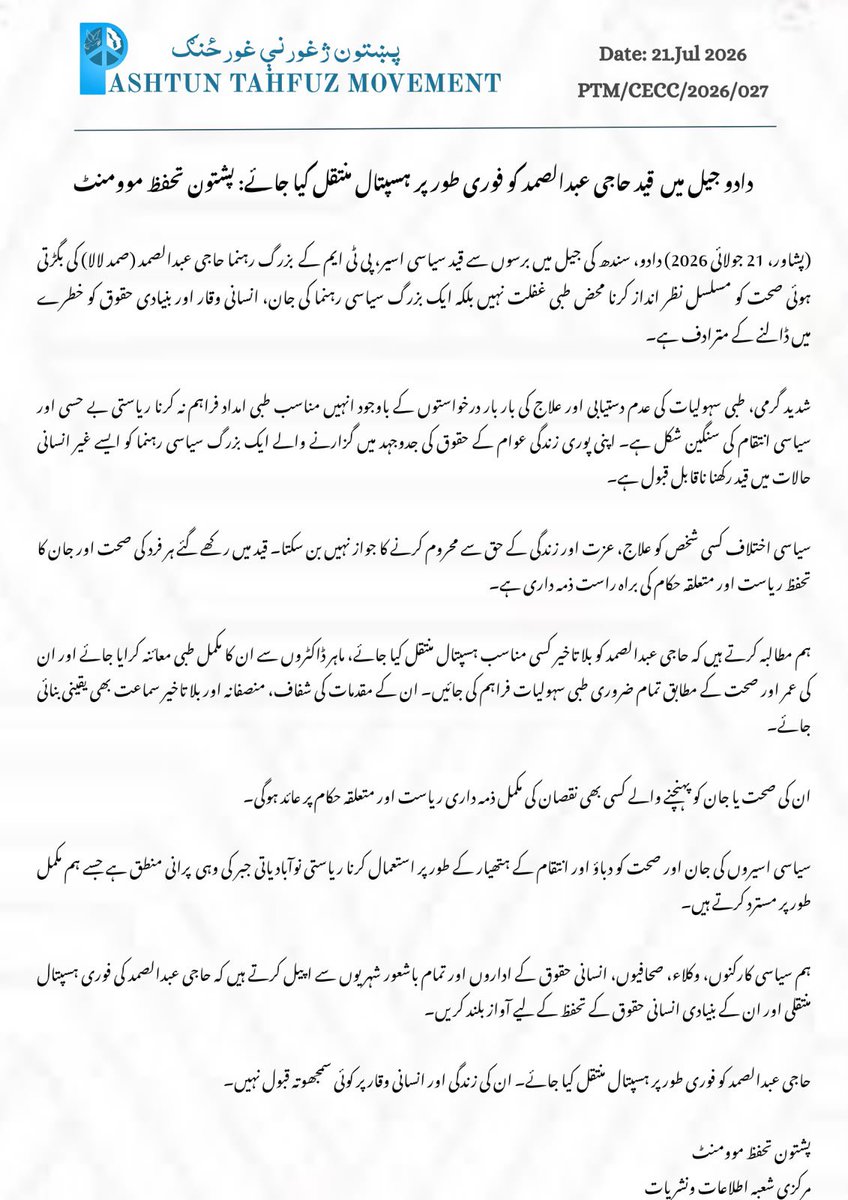 پښتون ژغورنې غورځنګ
PASHTUN TAHFUZ MOVEMENT
Date: 21.Jul 2026
PTM/CECC/2026/027
دادو جیل میں قید حاجی عبدالصمد کو فوری طور پر ہسپتال منتقل کیا جائے: پشتون تحفظ موومنٹ
(پشاور، 21 جولائی 2026) دادو، سندھ کی جیل میں برسوں سے قید سیاسی اسیر، پی ٹی ایم کے بزرگ رہنما حاجی عبدالصمد (صمد لالا) کی بگڑتی
ہوئی صحت کو مسلسل نظر انداز کرنا محض طبی غفلت نہیں بلکہ ایک بزرگ سیاسی رہنما کی جان، انسانی وقار اور بنیادی حقوق کو خطرے
میں ڈالنے کے مترادف ہے۔
شدید گرمی، طبی سہولیات کی عدم دستیابی اور علاج کی بار بار درخواستوں کے باوجود انہیں مناسب طبی امداد فراہم نہ کرنا ریاستی بے حسی اور
سیاسی انتقام کی سنگین شکل ہے۔ اپنی پوری زندگی عوام کے حقوق کی جدوجہد میں گزارنے والے ایک بزرگ سیاسی رہنما کو ایسے غیر انسانی
حالات میں قید رکھنا ناقابل قبول ہے۔
سیاسی اختلاف کسی شخص کو علاج، عزت اور زندگی کے حق سے محروم کرنے کا جواز نہیں بن سکتا۔ قید میں رکھے گئے ہر فرد کی صحت اور جان کا
تحفظ ریاست اور متعلقہ حکام کی براہ راست ذمہ داری ہے۔
ہم مطالبہ کرتے ہیں کہ حاجی عبدالصمد کو بلا تاخیر کسی مناسب ہسپتال منتقل کیا جائے، ماہر ڈاکٹروں سے ان کا مکمل طبی معائنہ کرایا جائے اور ان
کی عمر اور صحت کے مطابق تمام ضروری طبی سہولیات فراہم کی جائیں۔ ان کے مقدمات کی شفاف، منصفانہ اور بلا تاخیر سماعت بھی یقینی بنائی
جائے۔
ان کی صحت یا جان کو پہنچنے والے کسی بھی نقصان کی مکمل ذمہ داری ریاست اور متعلقہ حکام پر عائد ہوگی۔
سیاسی اسیروں کی جان اور صحت کو دباؤ اور انتقام کے ہتھیار کے طور پر استعمال کرنا ریاستی نوآبادیاتی جبر کی وہی پرانی منطق ہے جسے ہم مکمل
طور پر مسترد کرتے ہیں۔
ہم سیاسی کارکنوں، وکلاء، صحافیوں، انسانی حقوق کے اداروں اور تمام باشعور شہریوں سے اپیل کرتے ہیں کہ حاجی عبدالصمد کی فوری ہسپتال
منتقلی اور ان کے بنیادی انسانی حقوق کے تحفظ کے لیے آواز بلند کریں۔
حاجی عبدالصمد کو فوری طور پر ہسپتال منتقل کیا جائے۔ ان کی زندگی اور انسانی وقار پر کوئی سمجھوتہ قبول نہیں۔
پشتون تحفظ موومنٹ
مرکزی شعبہ اطلاعات ونشریات